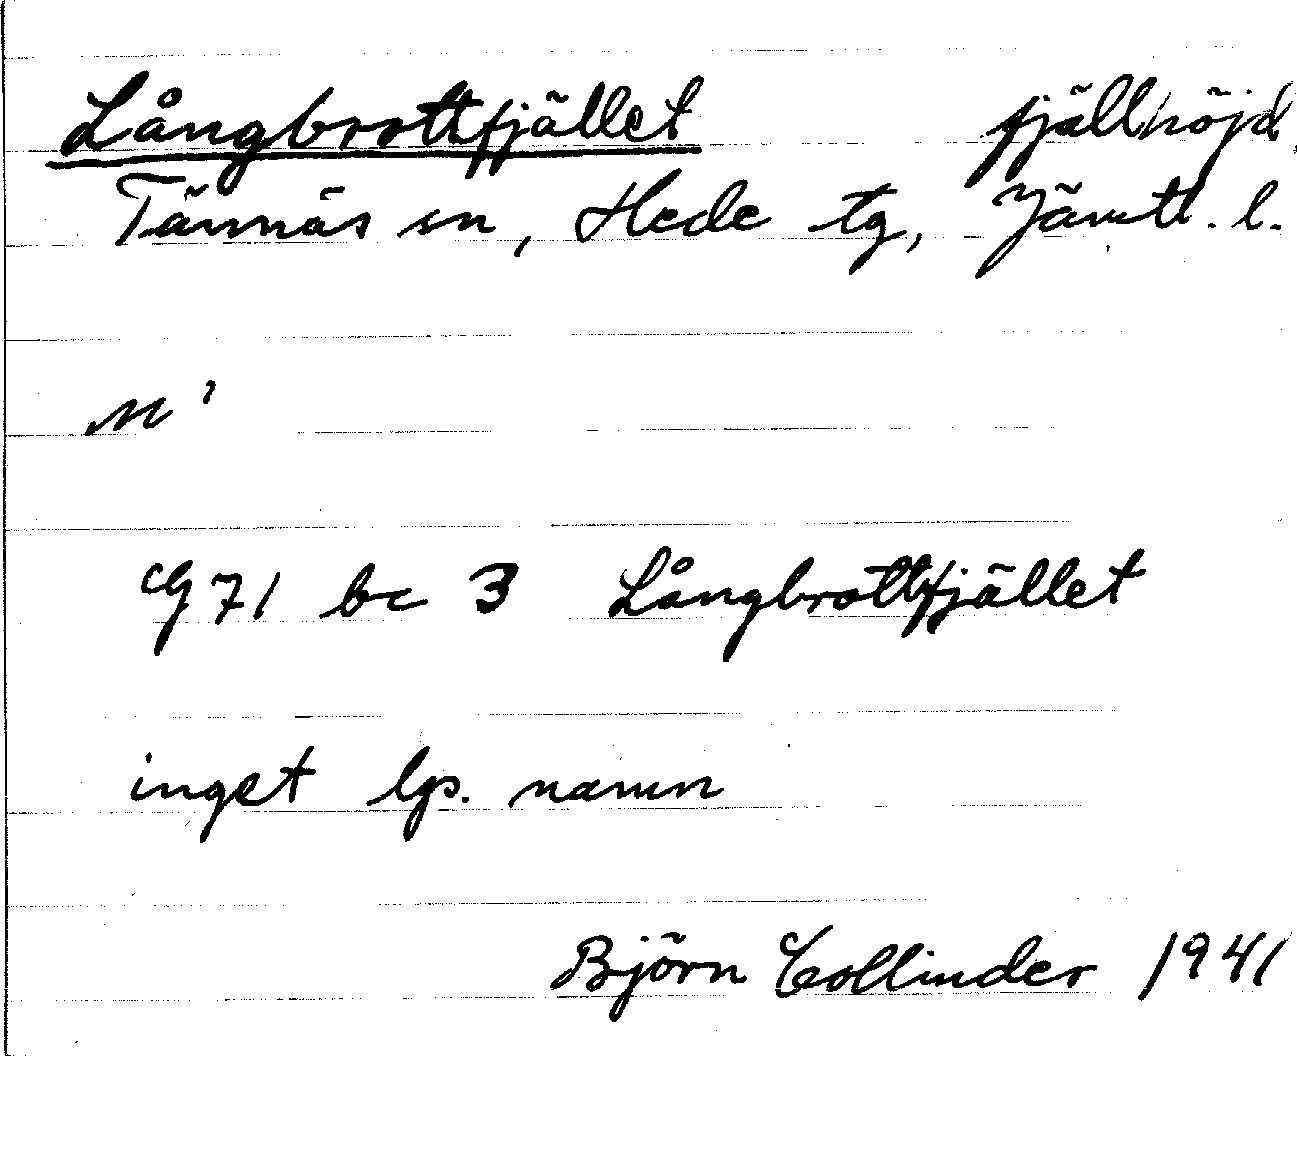 Långbrottfjället fjällhöjd,
Tännäs sn, Hede tg, Jämtl. l.
G 71 bc 3 Långbrottfjället
inget lps. namn
Björn Collinder 1941